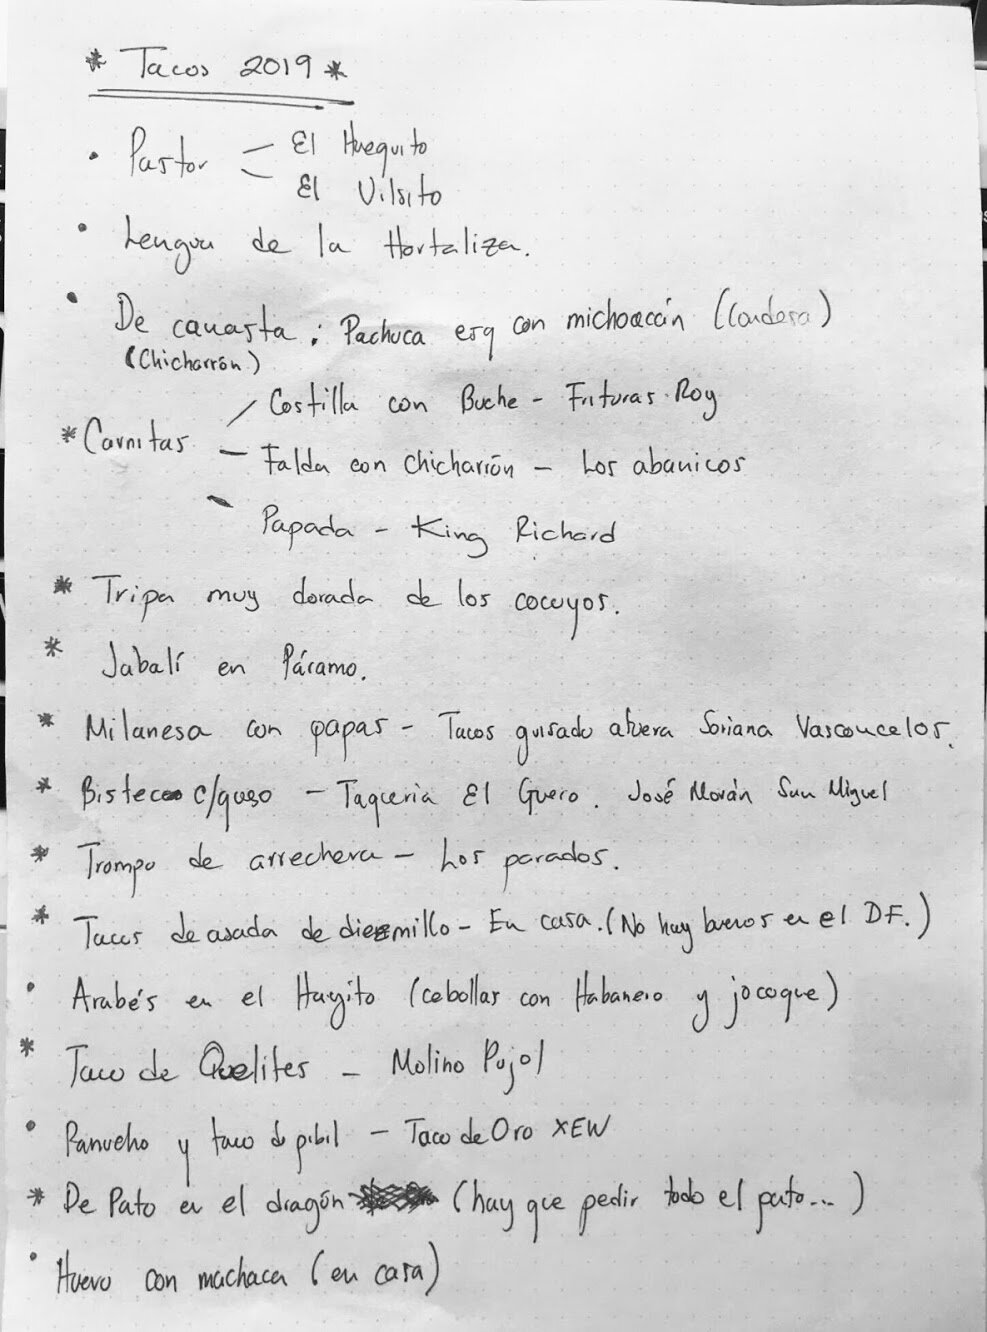 * Tacos 2019 *
• Pastor — El Huequito
— El Vilsito
• Lengua de la Hortaliza.
• De canasta : Pachuca esq con michoacán (Condesa)
(Chicharrón)
* Carnitas / Costilla con Buche - Frituras Roy
— Falda con chicharrón - Los abanicos
\ Papada - King Richard
* Tripa muy dorada de los cocuyos.
* Jabalí en Páramo.
* Milanesa con papas - Tacos guisado afuera Soriana Vasconcelos.
* Bistec c/queso - Taqueria El Guero. José Morán San Miguel
* Trompo de arrachera - Los parados.
* Tacos de asada de diezmillo - En casa. (No hay buenos en el DF.)
• Arabés en el Hayito (cebollas con Habanero y jocoque)
* Taco de Quelites - Molino Pujol
• Panucho y taco d pibil - Taco de Oro XEW
* De Pato en el dragón (hay que pedir todo el pato...)
• Huevo con machaca (en casa)